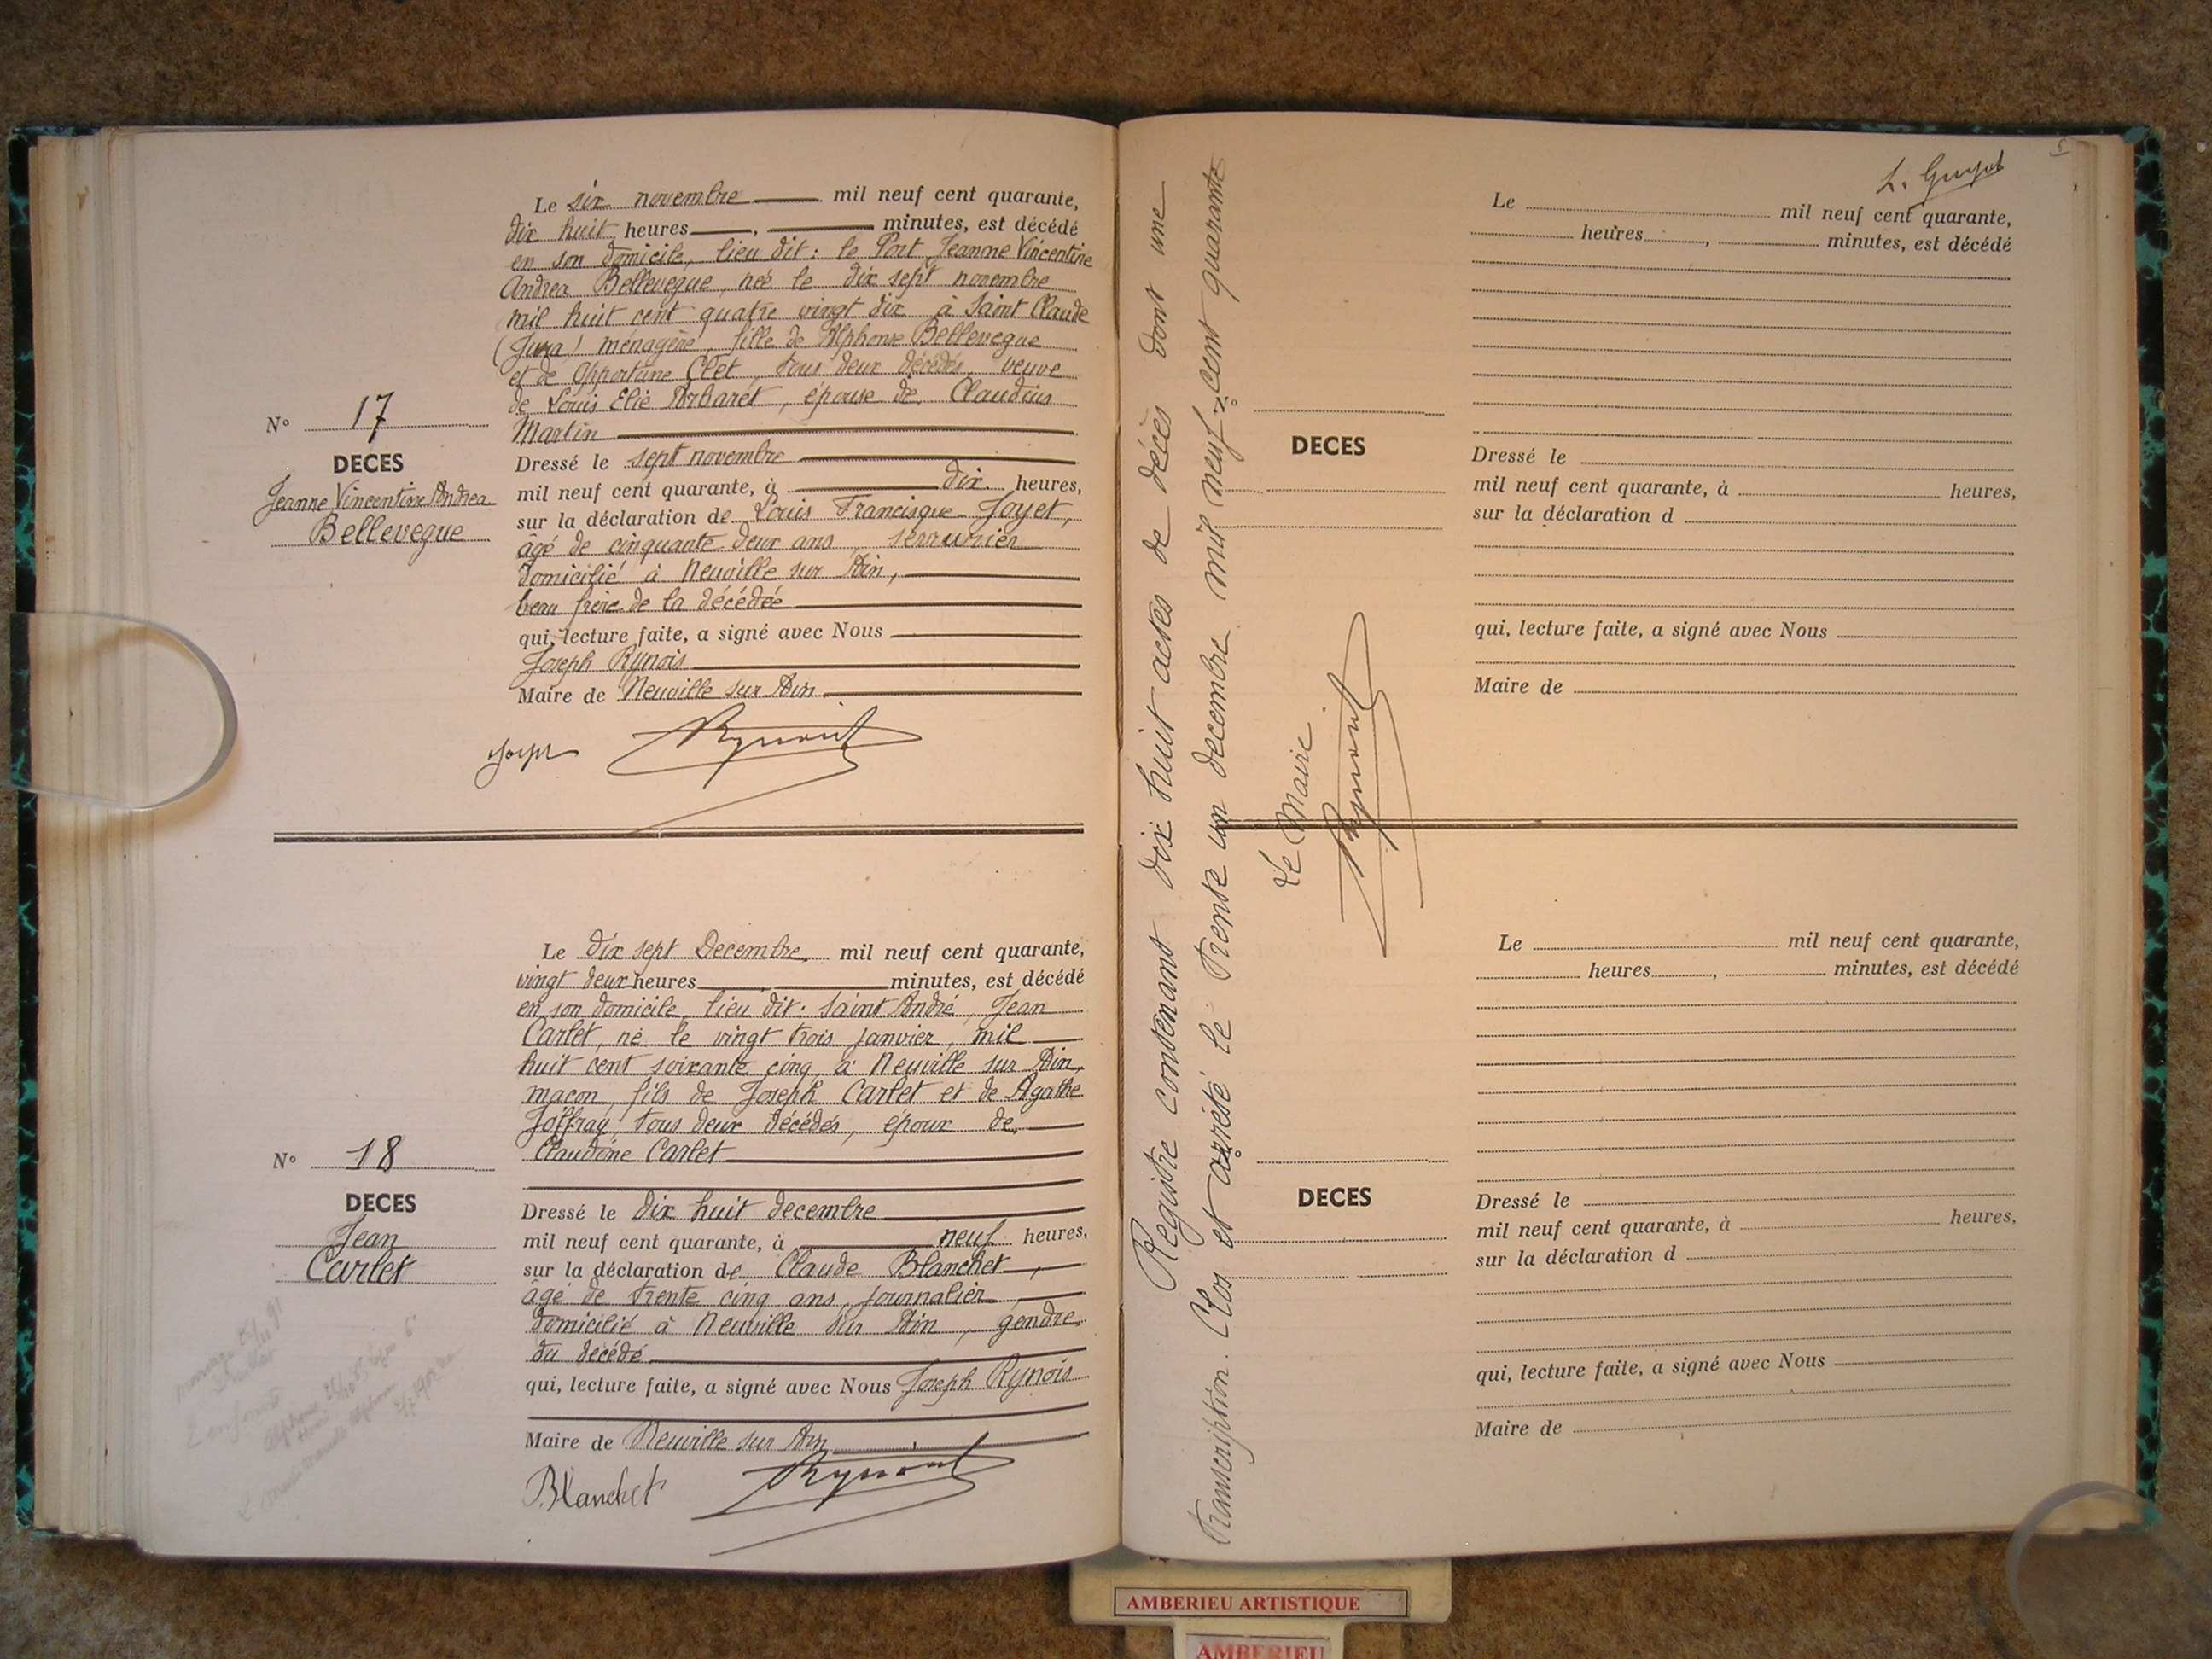 Le six novembre mil neuf cent quarante,
dix huit heures , minutes, est décédé
en son domicile, lieu dit: le Port Jeanne Vincentine
Andrea Bellevegue, née le dix sept novembre
mil huit cent quatre vingt dix à Saint Claude
(Jura) ménagère, fille de Alphonse Bellevegue
et de Opportune Clet, tous deux décédés, veuve
de Louis Elie Arbaret, épouse de Claudius
Martin
N° 17
DECES
Jeanne Vincentine Andrea
Bellevegue
Dressé le sept novembre
mil neuf cent quarante, à dix heures,
sur la déclaration de Louis Francisque Joyet,
âgé de cinquante deux ans serrurier
domicilié à Neuville sur Ain,
beau frère de la décédée
qui, lecture faite, a signé avec Nous
Joseph Rynois
Maire de Neuville sur Ain
Joyet Rynois
Le dix sept Decembre mil neuf cent quarante,
vingt deux heures , minutes, est décédé
en son domicile, lieu dit: Saint André, Jean
Carlet, né le vingt trois janvier, mil
huit cent soixante cinq à Neuville sur Ain,
maçon, fils de Joseph Carlet et de Agathe
Joffray tous deux décédés, époux de
Claudine Carlet
N° 18
DECES
Jean
Carlet
Dressé le dix huit decembre
mil neuf cent quarante, à neuf heures,
sur la déclaration de Claude Blanchet,
âgé de trente cinq ans, journalier
domicilié à Neuville sur Ain, gendre
du décédé
qui, lecture faite, a signé avec Nous Joseph Rynois
Maire de Neuville sur Ain
Blanchet Rynois
Registre contenant dix huit actes de décès dont une
transcription. Clos et arrêté le Trente un decembre mil neuf cent quarante
Le Maire
Rynois
L. Guyot
Le mil neuf cent quarante,
heures , minutes, est décédé
DECES
Dressé le
mil neuf cent quarante, à heures,
sur la déclaration d
qui, lecture faite, a signé avec Nous
Maire de
Le mil neuf cent quarante,
heures , minutes, est décédé
DECES
Dressé le
mil neuf cent quarante, à heures,
sur la déclaration d
qui, lecture faite, a signé avec Nous
Maire de
AMBERIEU ARTISTIQUE
AMBERIEU